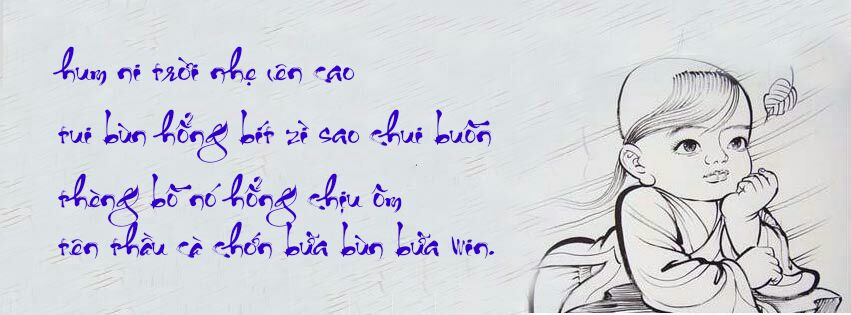 hum ni trời nhẹ lên cao
tui bùn hổng bít zì sao chui buồn
thèng bồ nó hổng chịu ôm
tên thầu cà chớn bữa bùn bữa win.